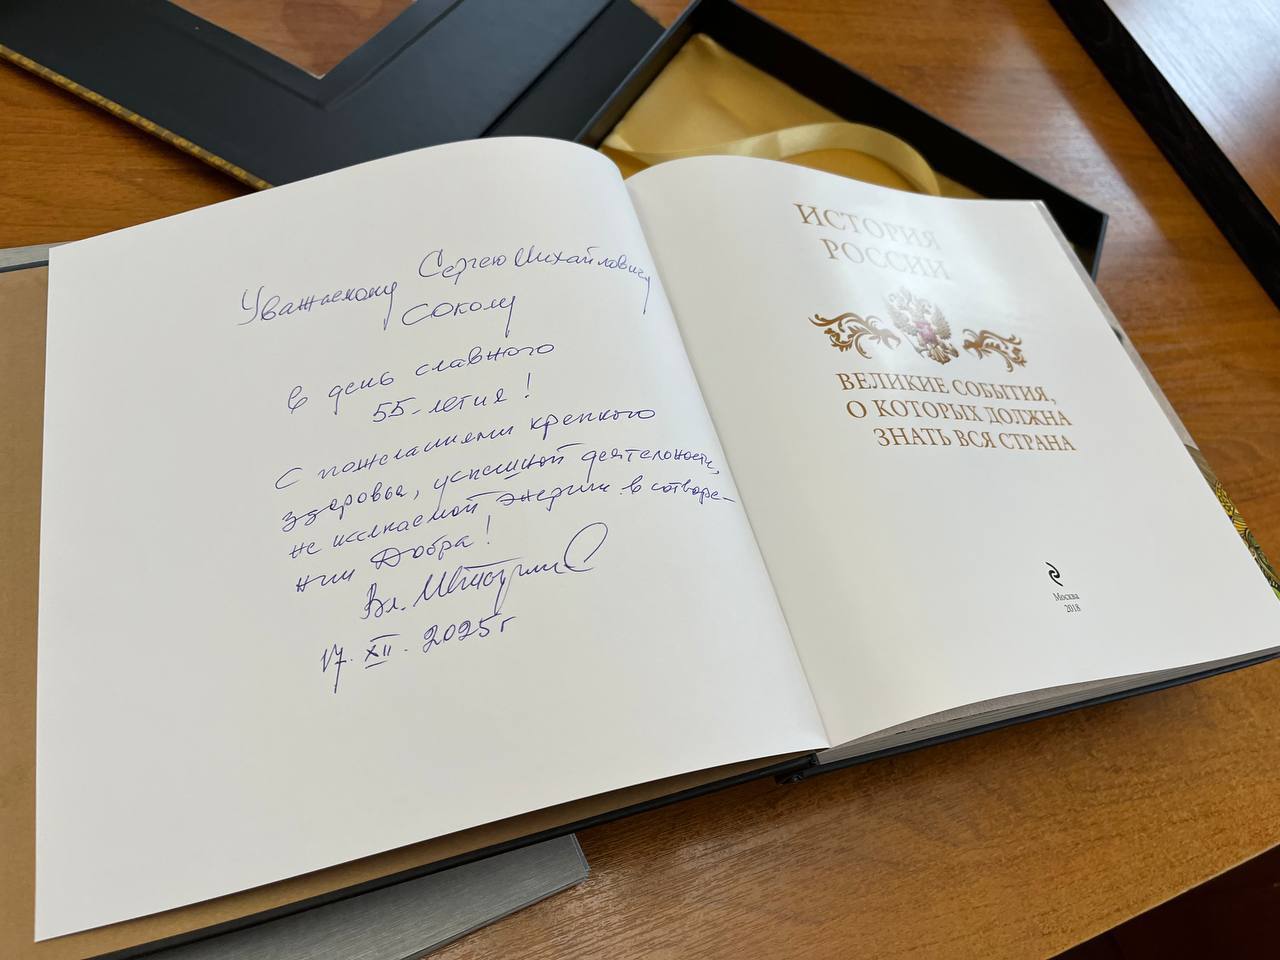 Уважаемому Сергею Михайловичу
Соколу
в день славного
55-летия!
С пожеланиями крепкого
здоровья, успешной деятельности,
неиссякаемой энергии в сотворе-
нии Добра!
Вл.
17. XII. 2025г
ИСТОРИЯ
РОССИИ
ВЕЛИКИЕ СОБЫТИЯ,
О КОТОРЫХ ДОЛЖНА
ЗНАТЬ ВСЯ СТРАНА
Москва
2018